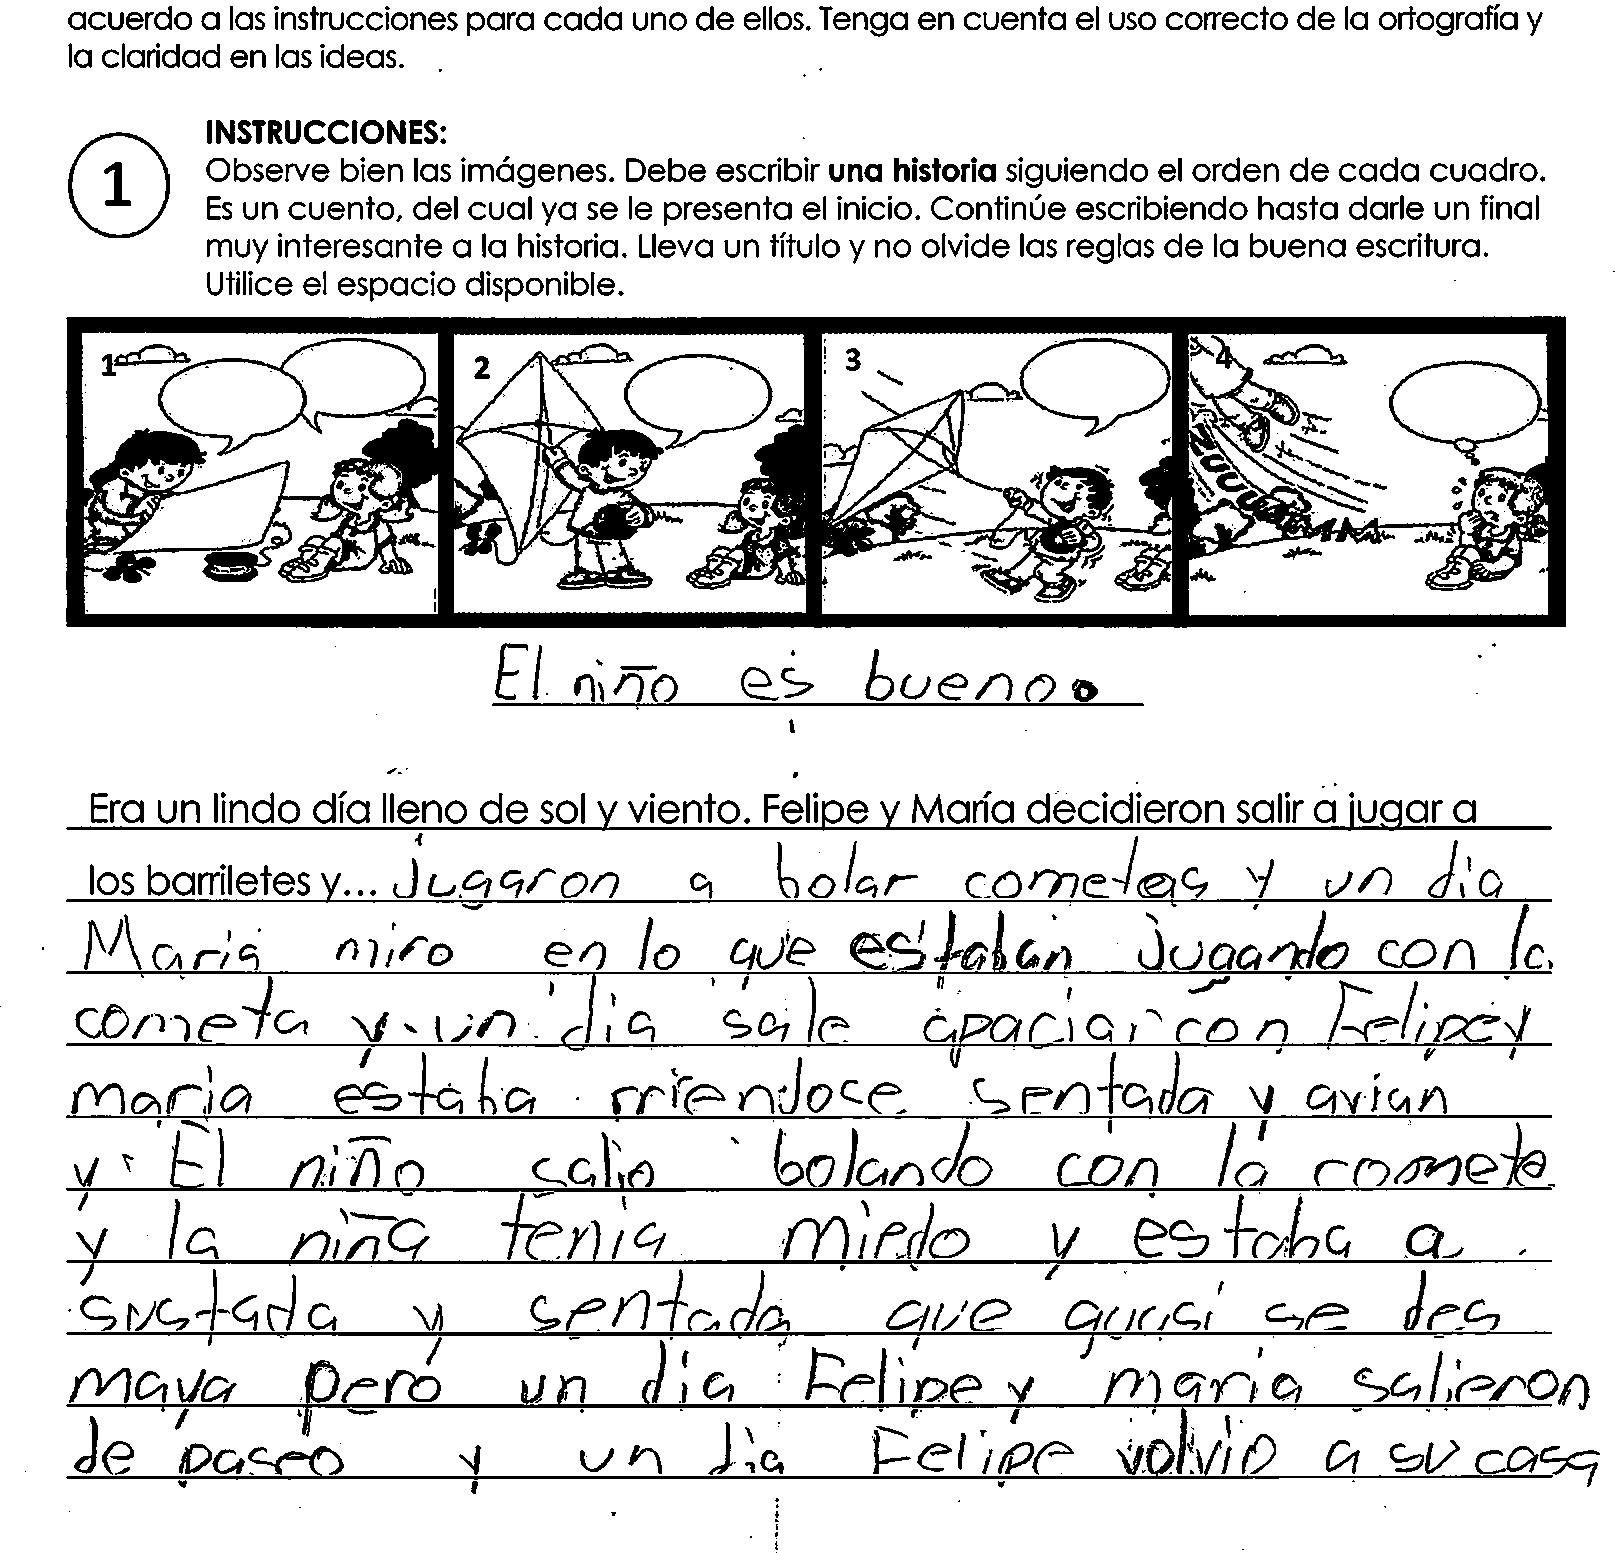 acuerdo a las instrucciones para cada uno de ellos. Tenga en cuenta el uso correcto de la ortografía y
la claridad en las ideas.
1
INSTRUCCIONES:
Observe bien las imágenes. Debe escribir una historia siguiendo el orden de cada cuadro.
Es un cuento, del cual ya se le presenta el inicio. Continúe escribiendo hasta darle un final
muy interesante a la historia. Lleva un título y no olvide las reglas de la buena escritura.
Utilice el espacio disponible.
1 2 3 4
El niño es bueno.
Era un lindo día lleno de sol y viento. Felipe y María decidieron salir a jugar a
los barriletes y... jugaron a bolar cometas y un dia
Maria miro en lo que estaban jugando con la
cometa y un dia sale apaciar con Felipe y
maria estaba rriendoce sentada y avian
y El niño salio bolando con la cometa
y la niña tenia miedo y estaba a
sustada y sentada que quasi se des
maya pero un dia Felipe y maria salieron
de paseo y un dia Felipe volvio a su casa